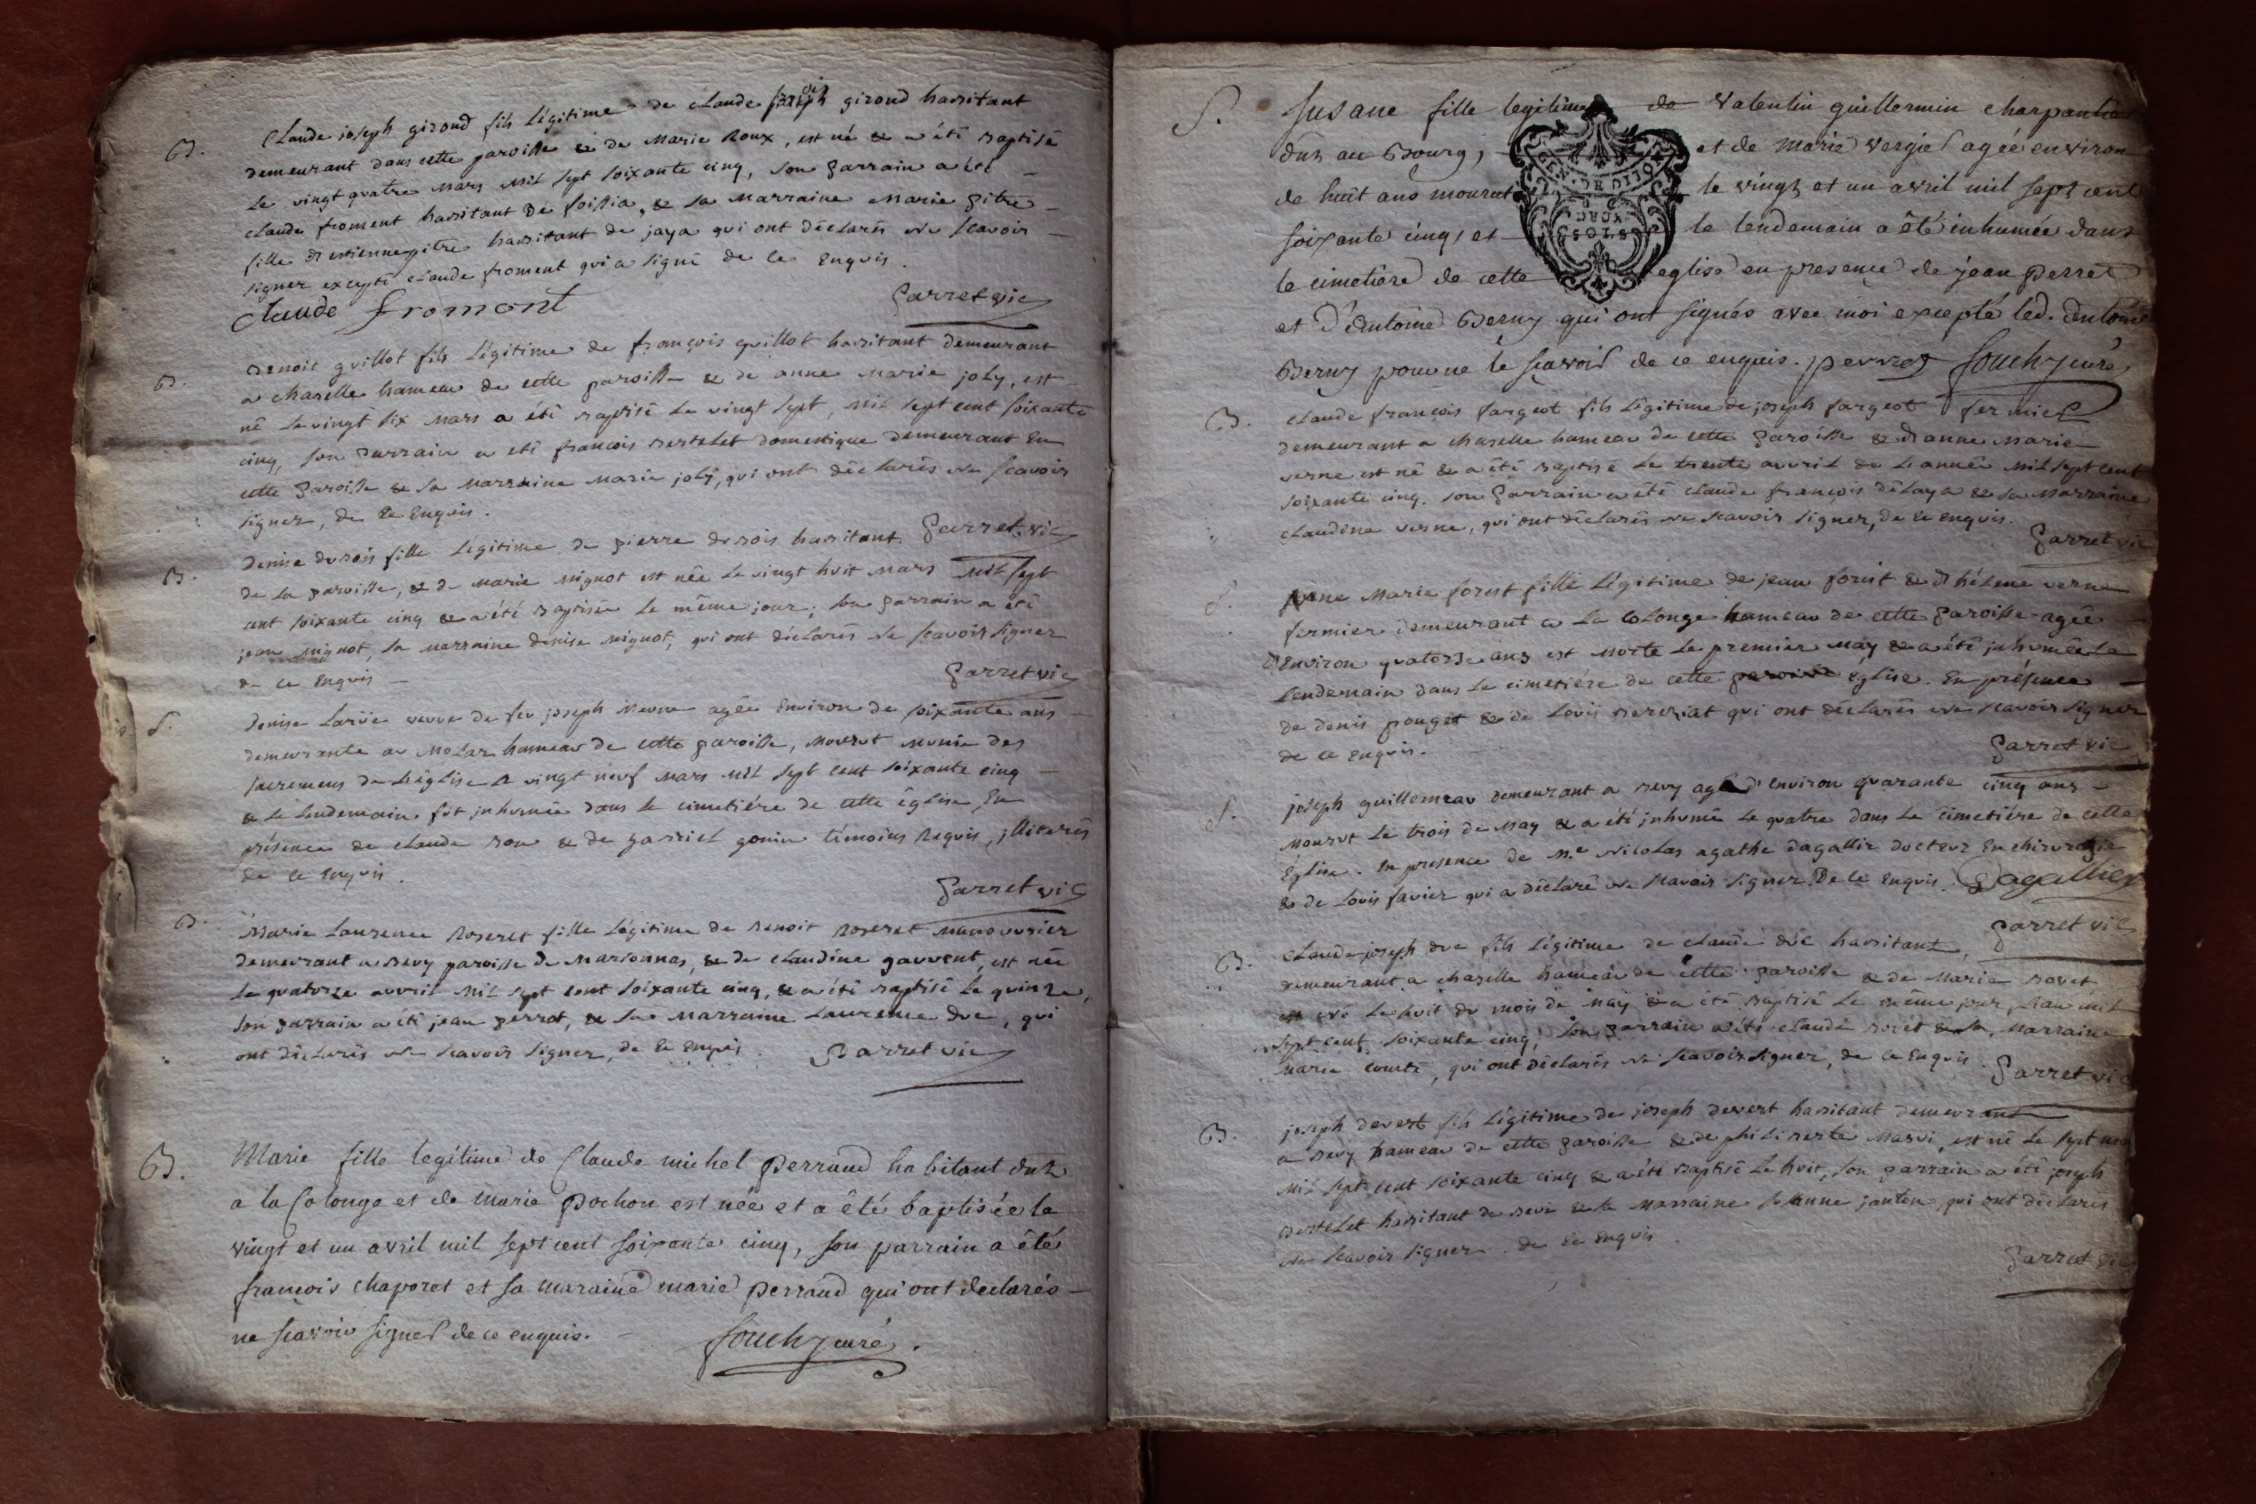 B. Claude joseph girond fils légitime de claude girond habitant
demeurant dans cette paroisse & de Marie Roux, est né & a été baptisé
le vingt quatre Mars Mil sept soixante cinq, son parrain a été
claude froment habitant de foissia, & sa marraine Marie pitre
fille d'estienne pitre habitant de jaya qui ont déclarés ne scavoir
signer excepté claude froment qui a signé de ce Enquis.
Claude fromont Parret vic
B. Benoit guillot fils légitime de françois guillot habitant demeurant
a chaselle hameau de cette paroisse & de anne marie joly, est
né le vingt six Mars a été baptisé le vingt sept, Mil sept cent soixante
cinq, son parrain a été francois bertelet domestique demeurant En
cette Paroisse & sa marraine Marie joly, qui ont déclarés ne scavoir
signer, de ce Enquis.
Parret vic
B. Denise dubois fille légitime de pierre dubois habitant
de la paroisse, & de Marie Mignot est née le vingt huit Mars Mil sept
cent soixante cinq & a été baptisée le même jour, son parrain a été
jean mignot, sa marraine denise mignot, qui ont déclarés ne scavoir signer
de ce Enquis
Parret vic
S. Denise veuve de feu joseph agée Environ de soixante ans
demeurante au Molar hameau de cette paroisse, mourut munie des
sacremens de l'église le vingt neuf Mars Mil sept cent soixante cinq
& le lendemain fut inhumée dans le cimetiére de cette église, En
présence de claude & de gabriel gonin témoins Requis, illiterés
de ce Enquis.
Parret vic
B. Marie Laurence Roseret fille légitime de Benoit Roseret Manouvrier
demeurant a Bevy paroisse de Marsonnas, & de claudine gauvent, est née
le quatorze avvril Mil sept cent soixante cinq, & a été baptisé le quinze,
son parrain a été jean perrot, & sa Marraine Laurence duc, qui
ont déclarés ne scavoir signer, de ce Enquis. Parret vic
B. Marie fille legitime de Claude michel perraud habitant dmt
a la Colonge et de marie pochon est née et a été baptisée le
vingt et un avril mil sept cent soixante cinq, son parrain a été
francois chaporet et sa maraine marie perraud qui ont declarés
ne scavoir signer de ce enquis.
fouchy curé.
S. Susane fille legitime de Valentin guillermin charpantier
dmt au Bourg, et de Marie Vergier agée environ
de huit ans mourut le vingt et un avril mil sept cent
soixante cinq, et le lendemain a été inhumée dans
le cimetière de cette eglise en presence de jean perret
et d'antoine Berny qui ont signés avec moi excepté led. antoine
Berny pour ne le scavoir de ce enquis. perrot fouchy curé
B. claude françois fargeot fils légitime de joseph fargeot fermier
demeurant a chaselle hameau de cette Paroisse & d'anne Marie
verne est né & a été baptisé le trente avvril de l'année Mil sept cent
soixante cinq. son Parrain a été claude françois délaya & sa Marraine
claudine verne, qui ont déclarés ne scavoir signer, de ce enquis.
Parret vic
S. Marie forest fille légitime de jean forest & d'héleine verne
fermier demeurant a la Colonge hameau de cette Paroisse agée
d'Environ quatorze ans est Morte le premier May & a été inhumée le
lendemain dans le cimetiére de cette église. En présence
de denis pouget & de Louis berurat qui ont déclarés ne scavoir signer
de ce enquis.
Parret vic
S. joseph guillemeau demeurant a Bevy agé d'environ quarante cinq ans
Mourut le trois de May & a été inhumé le quatre dans le cimetiére de cette
église. En presence de M.e Nicolas agathe dagallie docteur En chirurgie
& de Louis favier qui a déclaré ne scavoir signer De ce Enquis. Dagallier
Parret vic
B. Claude joseph duc fils légitime de claude duc habitant,
demeurant a chaselle hameau de cette paroisse & de Marie bovet
est né le huit du mois de May & a été baptisé le même jour, l'an mil
sept cent soixante cinq, son parrain a été claude bovet & sa Marraine
Marie comte, qui ont déclarés ne scavoir signer, de ce Enquis
Parret vic
B. joseph devert fils légitime de joseph devert habitant demeurant
a Bevy hameau de cette paroisse & de philiberte est né le sept may
Mil sept cent soixante cinq & a été baptisé le huit, son parrain a été joseph
bertelet habitant de bevi & la Marraine jeanne janton, qui ont déclarés
ne scavoir signer. de ce enquis.
Parret vic